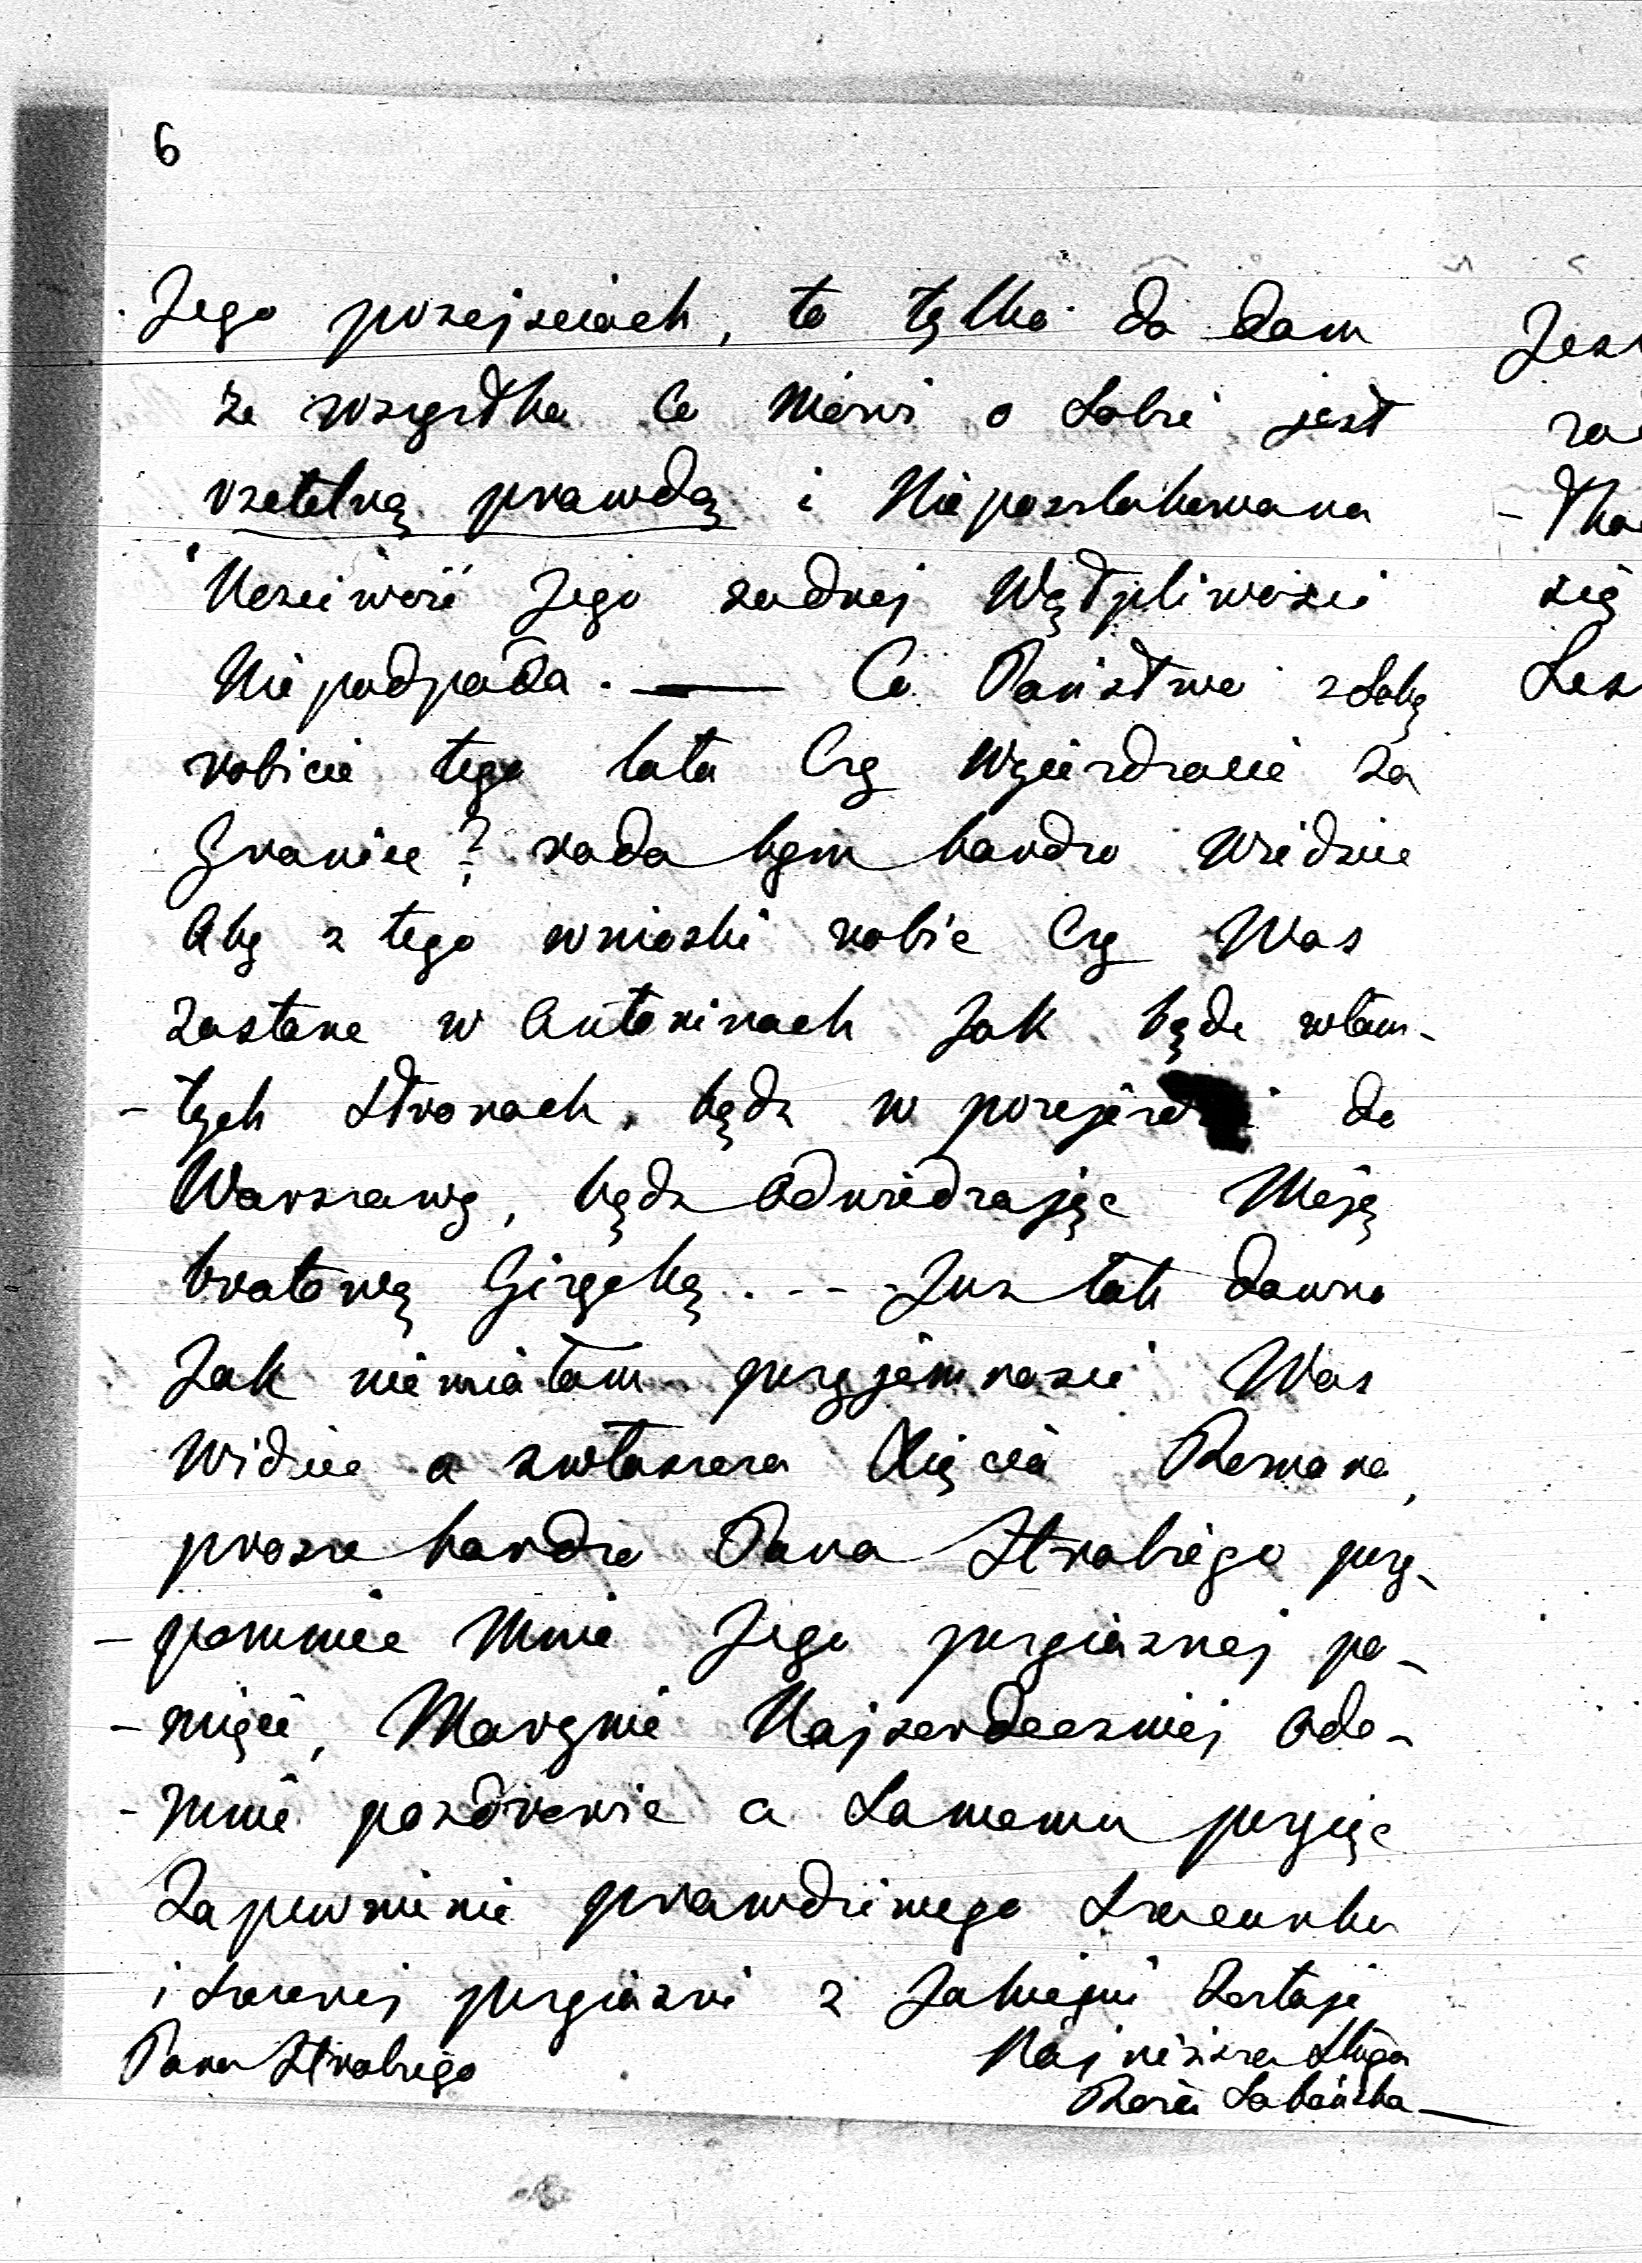 6
Jego przejsciach, to tylko do dam
że wszystko Co Mówi o Sobie jest
rzetelną prawdą i Nieposzlakowana
Uczciwość Jego żadnej Wątpliwości
Nie podpada. — Co Państwo z Sobą
robicie tego lata Czy Wyjeżdzacie za
Granice? rada bym bardzo Widziec
Aby z tego wnioski robic Czy Was
zastane w Antoninach Jak będe wtam-
-tych Stronach, bądz w przejezdzi do
Warszawy, bądz Odwiedzając Moją
bratową Giżycką. - - - Jusz tak dawno
Jak niemiałam przyjemnosci Was
Widziec a zwłaszcza Xięcia Romana,
prosze bardzo Pana Hrabiego przy-
-pomniec Mnie Jego przyjaznej pa-
-mięci, Maryni Najserdeczniej Ode-
-mnie pozdrowic a Samemu przyjąc
Zapewnienie prawdziwego Szacunku
i Szczerej przyjazni z Jakiejmi Zostaje
Pana Hrabiego
Najniższa Sługa
Róża Sobańska —
Jes
się